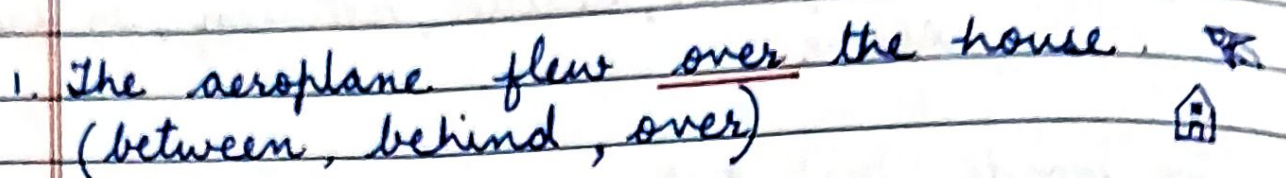 1. The aeroplane flew over the house.
(between, behind, over)